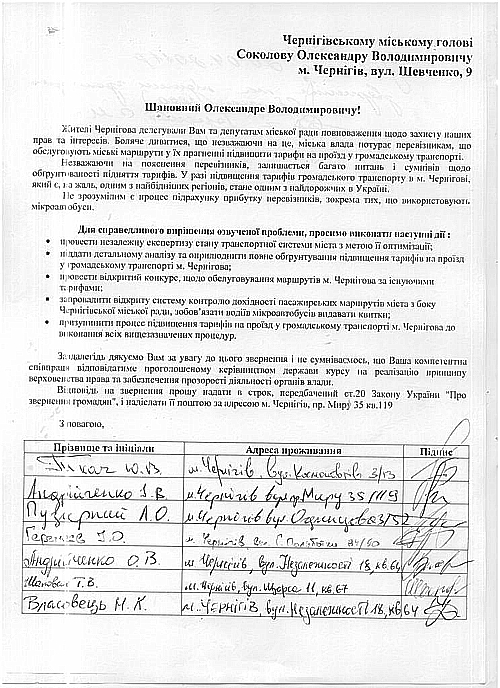 Чернігівському міському голові
Соколову Олександру Володимировичу
м. Чернігів, вул. Шевченко, 9
Шановний Олександре Володимировичу!
Жителі Чернігова делегували Вам та депутатам міської ради повноваження щодо захисту наших
прав та інтересів. Боляче дивитися, що незважаючи на це, міська влада потурає перевізникам, що
обслуговують міські маршрути у їх прагненні підвищити тарифи на проїзд у громадському транспорті.
Незважаючи на пояснення перевізників, залишається багато питань і сумнівів щодо
обґрунтованості підняття тарифів. У разі підвищення тарифів громадського транспорту в м. Чернігові,
який є, на жаль, одним з найбідніших регіонів, стане одним з найдорожчих в Україні.
Не зрозумілим є процес підрахунку прибутку перевізників, зокрема тих, що використовують
мікроавтобуси.
Для справедливого вирішення озвученої проблеми, просимо виконати наступні дії :
• провести незалежну експертизу стану транспортної системи міста з метою її оптимізації;
• піддати детальному аналізу та оприлюднити повне обґрунтування підвищення тарифів на проїзд
у громадському транспорті м. Чернігова;
• провести відкритий конкурс, щодо обслуговування маршрутів м. Чернігова за існуючими
тарифами;
• запровадити відкриту систему контролю дохідності пасажирських маршрутів міста з боку
Чернігівської міської ради, зобов'язати водіїв мікроавтобусів видавати квитки;
• призупинити процес підвищення тарифів на проїзд у громадському транспорті м. Чернігова до
виконання всіх вищезазначених процедур.
Заздалегідь дякуємо Вам за увагу до цього звернення і не сумніваємось, що Ваша компетентна
співпраця відповідатиме проголошеному керівництвом держави курсу на реалізацію принципу
верховенства права та забезпечення прозорості діяльності органів влади.
Відповідь на звернення прошу надати в строк, передбачений ст.20 Закону України "Про
звернення громадян", і надіслати її поштою за адресою м. Чернігів, пр. Миру 35 кв.119
З повагою,
Прізвище та ініціали Адреса проживання Підпис
Ткач Ю.В. м. Чернігів, вул.
Андрійченко І.В. м. Чернігів вул. Миру 35/119
А.О. м. Чернігів вул. Одинцова
І.О. м. Чернігів вул. С. Полуботка
Андрійченко О.В. м. Чернігів, вул. Незалежності 18, кв.64
Шаповал Т.В. м. Чернігів, вул. Щорса 11, кв.67
Власовець М.К. м. Чернігів, вул. Незалежності 18, кв.64